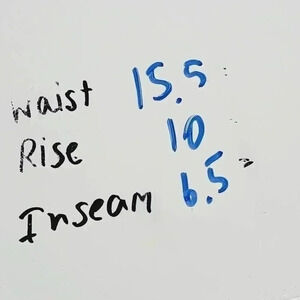 Waist 15.5
Rise 10
Inseam 6.5